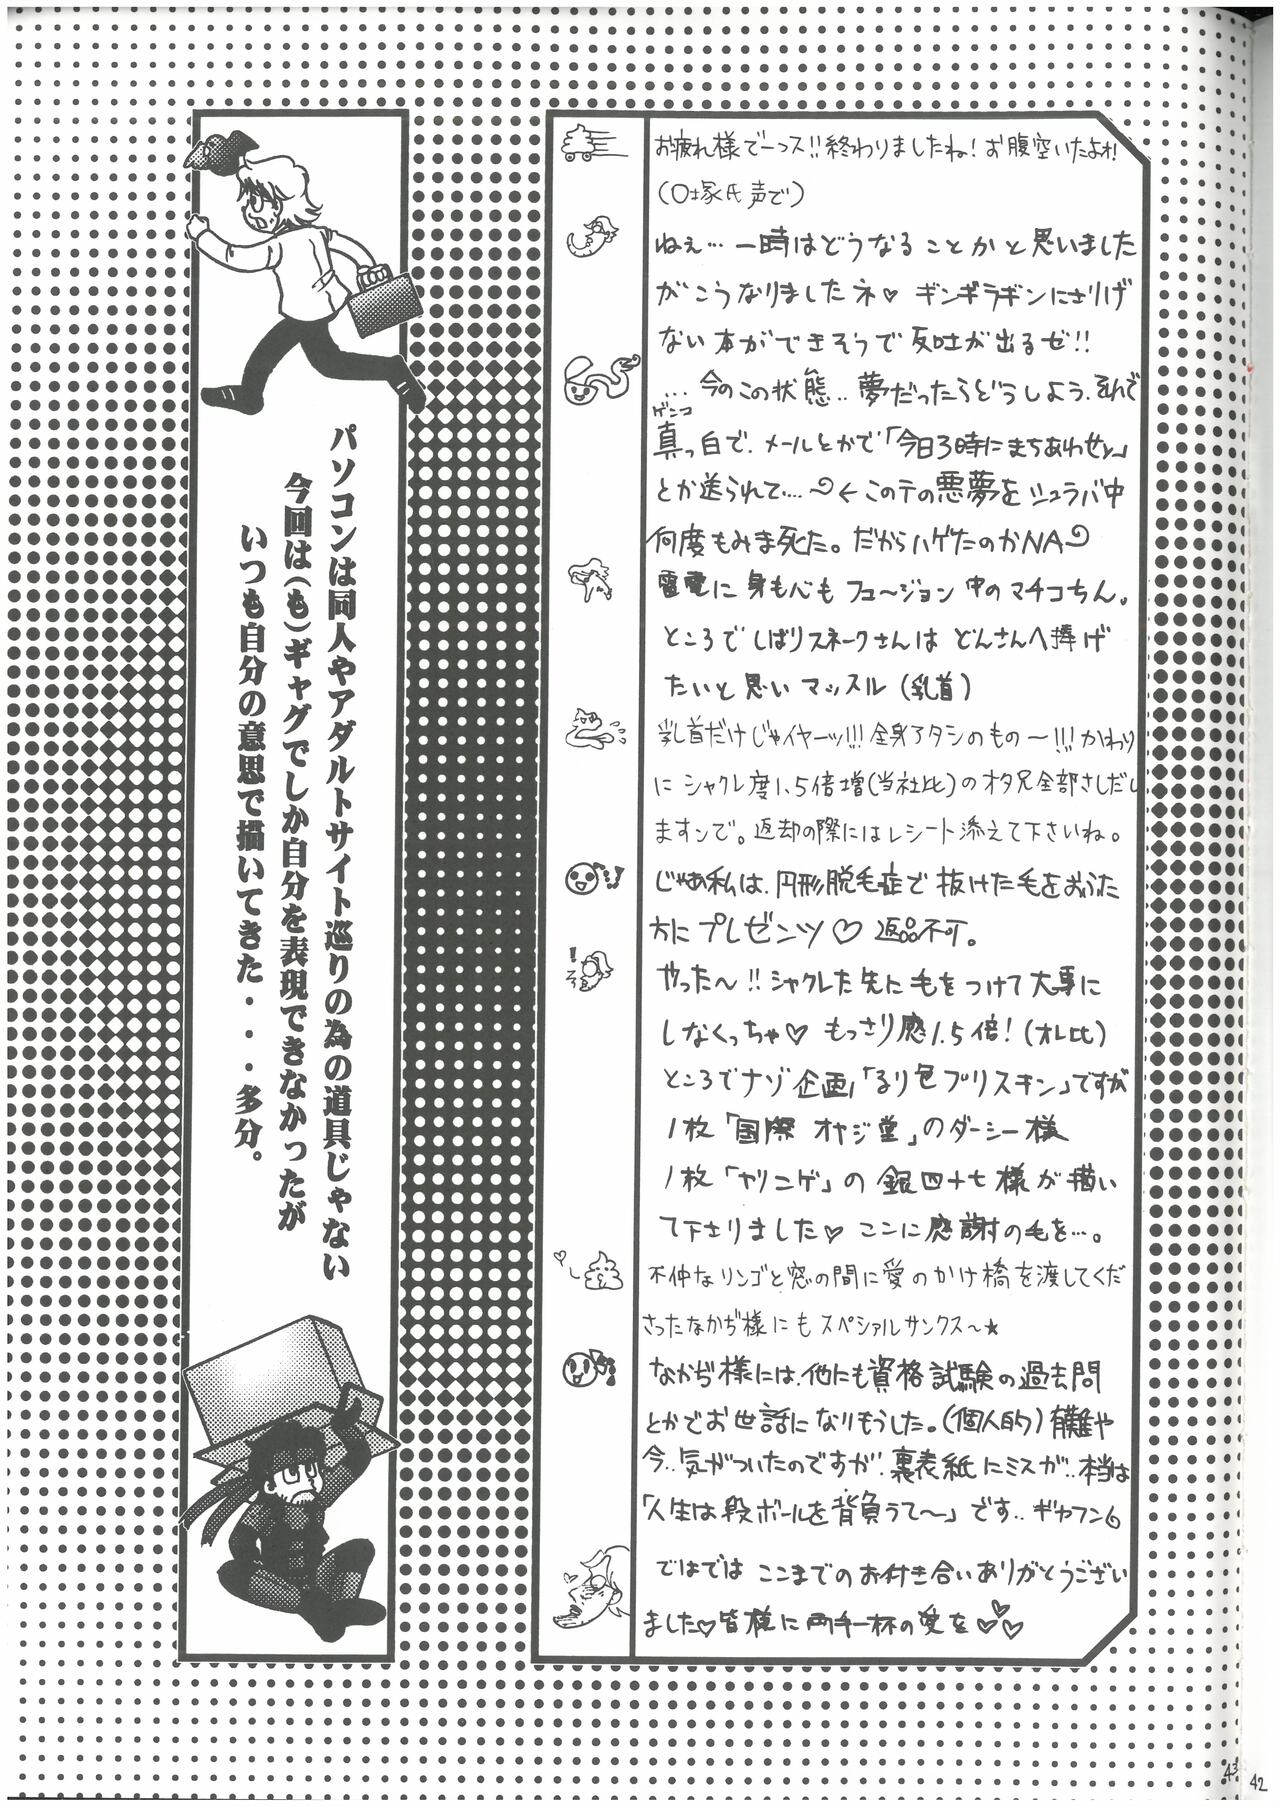 お疲れ様でーっス!!終わりましたね!お腹空いたよォ!
(○塚氏声で)
ねぇ…一時はどうなることかと思いました
がこうなりましたネ♡ ギンギラギンにさりげ
ない本ができそうで反吐が出るゼ!!
…今のこの状態..夢だったらどうしよう.それで
ゲンコ
真っ白で.メールとかで「今日3時にまちあわせ」
とか送られて…. ←このテの悪夢をシュラバ中
何度もみま死た。だからハゲたのかNA
雷電に身も心もフュ〜ジョン中のマチコちん。
ところでしばりスネークさんは どんさんへ捧げ
たいと思いマッスル(乳首)
乳首だけじゃイヤーッ!!!全身アタシのもの〜!!!かわり
にシャクレ度1.5倍増(当社比)のオタ兄全部さしだし
ますンで。返却の際にはレシート添えて下さいね。
じゃあ私は、円形脱毛症で抜けた毛をおうた
方にプレゼンツ♡ 返品不可。
やった〜!!シャクレた先に毛をつけて大事に
しなくっちゃ♡ もっさり感1.5倍!(オレ比)
ところでナゾ企画「るり色プリスキン」ですが
1枚「国際オヤジ堂」のダーシー様
1枚「ヤリニゲ」の銀四十七様が描い
て下さりました♡ ここに感謝の毛を…。
不仲なリンゴと窓の間に愛のかけ橋を渡してくだ
さったなかぢ様にもスペシャルサンクス〜★
なかぢ様には、他にも資格試験の過去問
とかでお世話になりもうした。(個人的)有難や
今..気がついたのですが.裏表紙にミスが..本当は
「人生は段ボールを背負うて〜」です..ギャフン
ではでは ここまでのお付き合いありがとうござい
ました♡皆様に両手一杯の愛を♡♡♡
パソコンは同人やアダルトサイト巡りの為の道具じゃない
今回は(も)ギャグでしか自分を表現できなかったが
いつも自分の意思で描いてきた・・・多分。
43
42